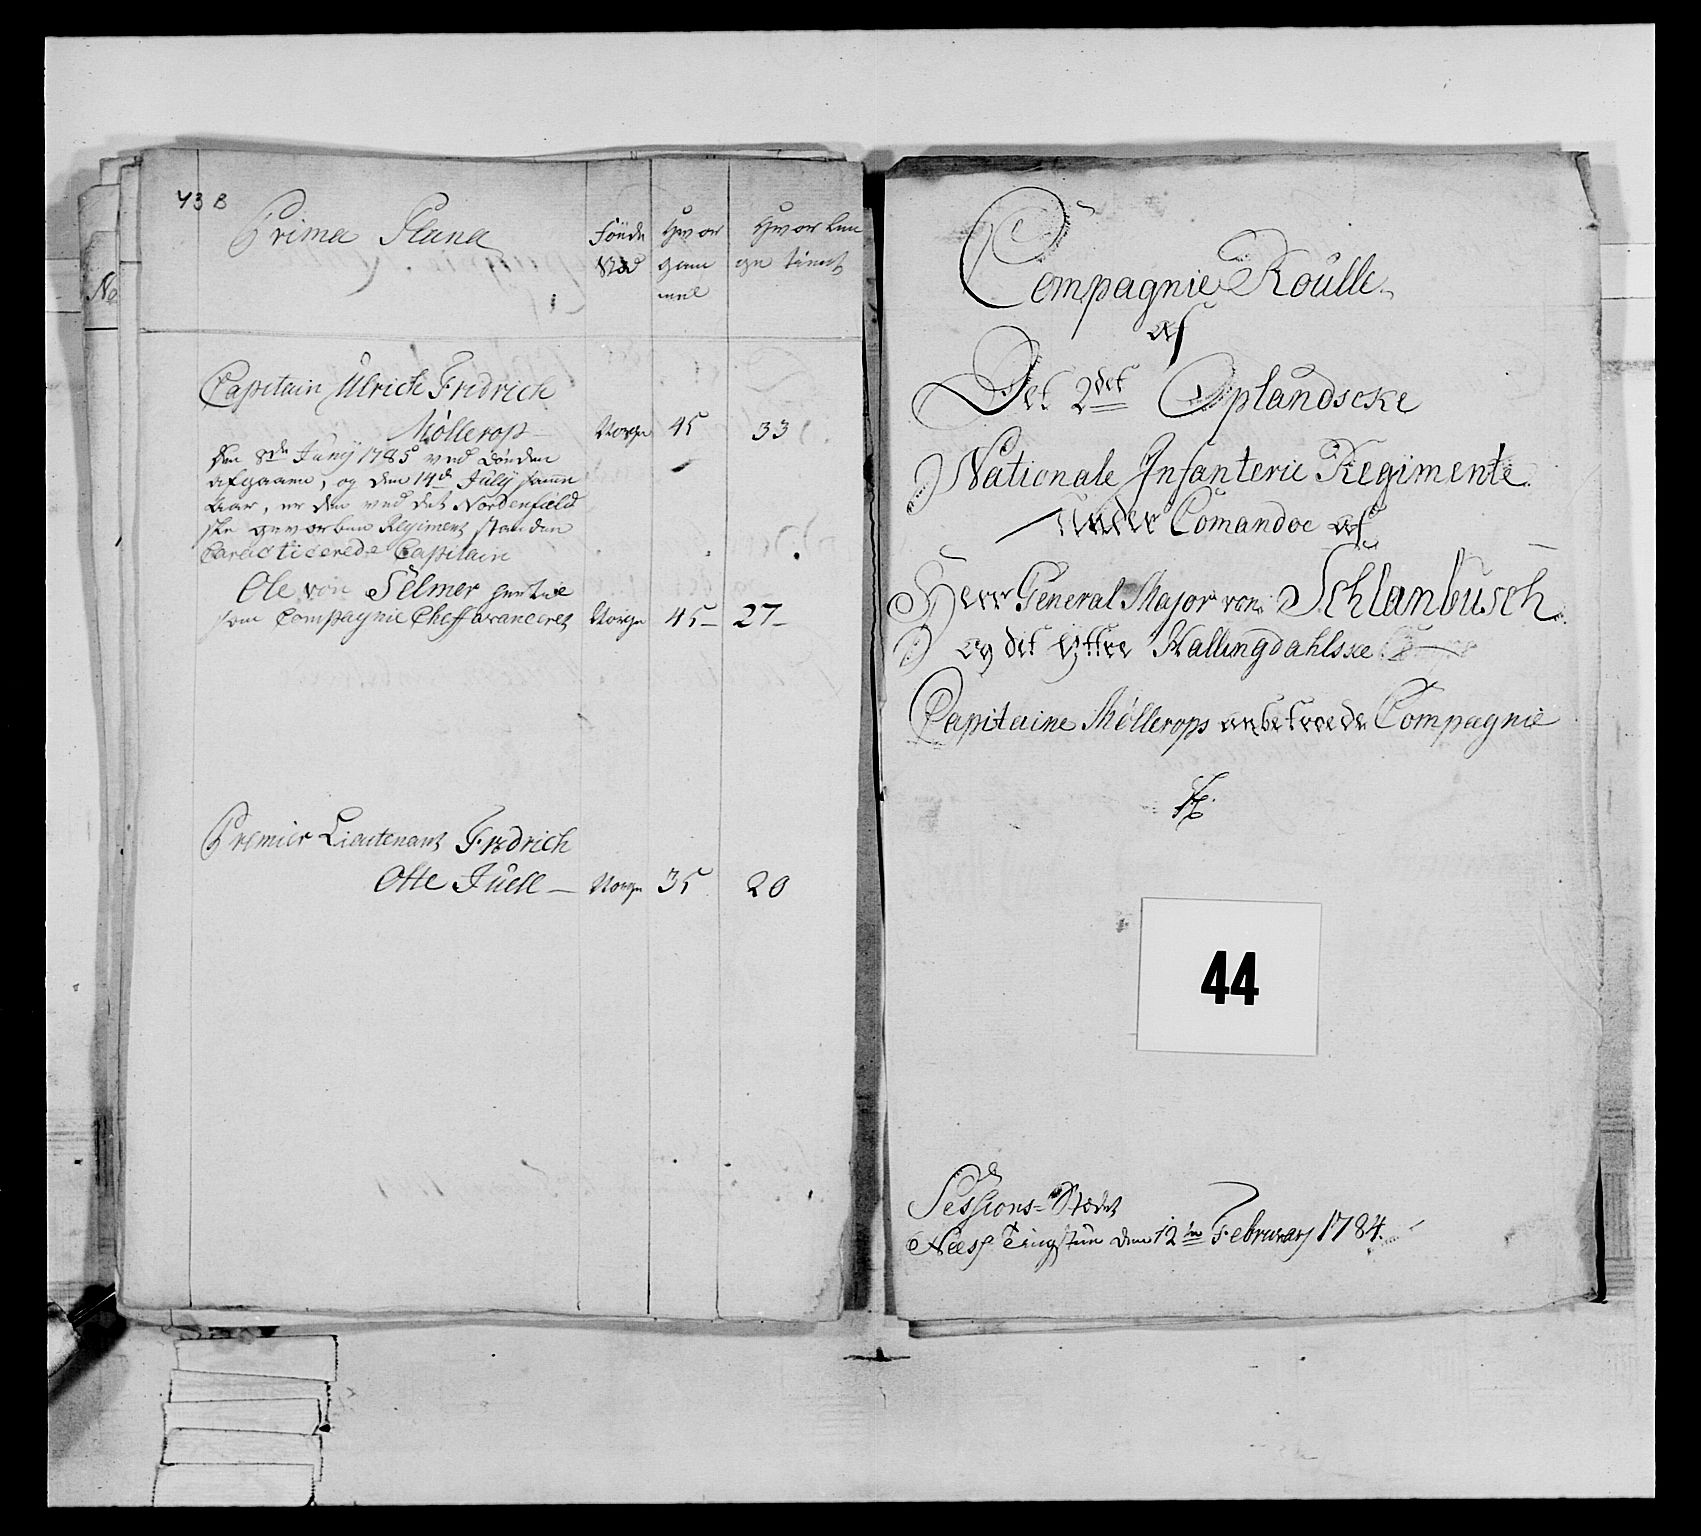 43 B
Prima Plana
Föude
Stæd
Hvor
gam
mel
Hvor læn
ge tient
No
Capitain Ulrich Fridrich
Møllerop — Norge 45 33
Den 8de Juny 1785 ved Döden
afgaaen, og den 14de July samme
Aar, er den ved det Nordenfield
ske gevorben Regiment standen
Caracticerede Capitain
Ole von Selmer hertil
som Compagnie Chef avanceret Norge 45 — 27 —
Premier Lieutenant Fridrich
Otte Juell — Norge 35 20
Compagnie Roulle
af
Det 2det Oplandscke
Nationale Infanterie Regimente
under Comandoe af
Herr General Major von Schlanbusch
og det Yttre Hallingdahlske
Capitaine Møllerops anbetroede Compagnie
44
Sessions-Stædet
Næss Tingstue den 12te February 1784.